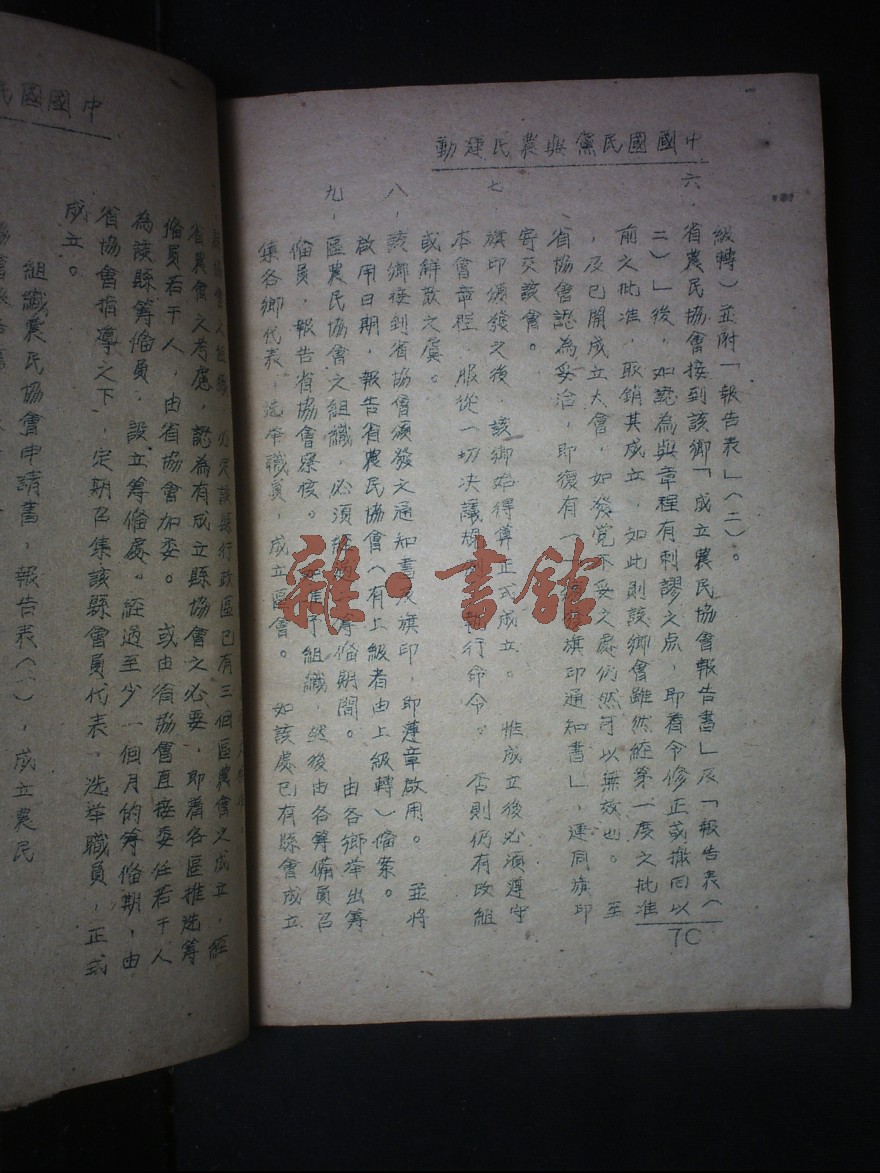 中國國民黨與農民運動
級轉)並附「報告表」(二)。
六、省農民協會接到該鄉「成立農民協會報告書」及「報告表(
二)」後,如認為與章程有刺謬之点,即着令修正或撤回以
前之批准,取銷其成立,如此則該鄉會雖然經第一度之批准
,及已開成立大會,如發覺不妥之處仍然可以無效也。 至
省協會認為妥洽,即復有「 旗印通知書」,連同旗印
寄交該會。
七、旗印頒發之後,該鄉始得算正式成立。 惟成立後必須遵守
本會章程,服從一切決議 執行命令。 否則仍有改組
或解散之虞。
八、該鄉接到省協會頒發之通知書及旗印,即遵章啟用。 並將
啟用日期,報告省農民協會(有上級者由上級轉)備案。
九、區農民協會之組織,必須經 籌備期間。 由各鄉举出籌
備員,報告省協會察核。 准予組織,然後由各籌備員召
集各鄉代表,选举職員,成立區會。 如該處已有縣會成立
70
中國國民
該縣行政區已有三個區農會之成立,經
省農會之考慮,認為有成立縣協會之必要,即着各區推选籌
備員若干人,由省協會加委。 或由省協會直接委任若干人
為該縣籌備員,設立籌備處。經過至少一個月的籌備期,由
省協會指導之下,定期召集該縣會員代表,选举職員,正式
成立。
組織農民協會申請書,報告表(一),成立農民
雜·書館